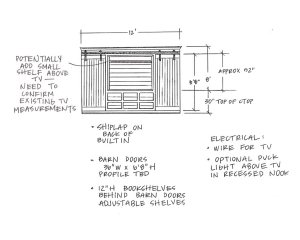 12'
POTENTIALLY
ADD SMALL
SHELF ABOVE
TV —
NEED TO
CONFIRM
EXISTING TV
MEASUREMENTS
APPROX 52"
6'8"
8'
30" TOP OF CTOP
• SHIPLAP ON
BACK OF
BUILTIN
• BARN DOORS
36"W x 6'8"H
PROFILE TBD
• 12"H BOOKSHELVES
BEHIND BARN DOORS
ADJUSTABLE SHELVES
ELECTRICAL:
• WIRE FOR TV
• OPTIONAL PUCK
LIGHT ABOVE TV
IN RECESSED NOOK